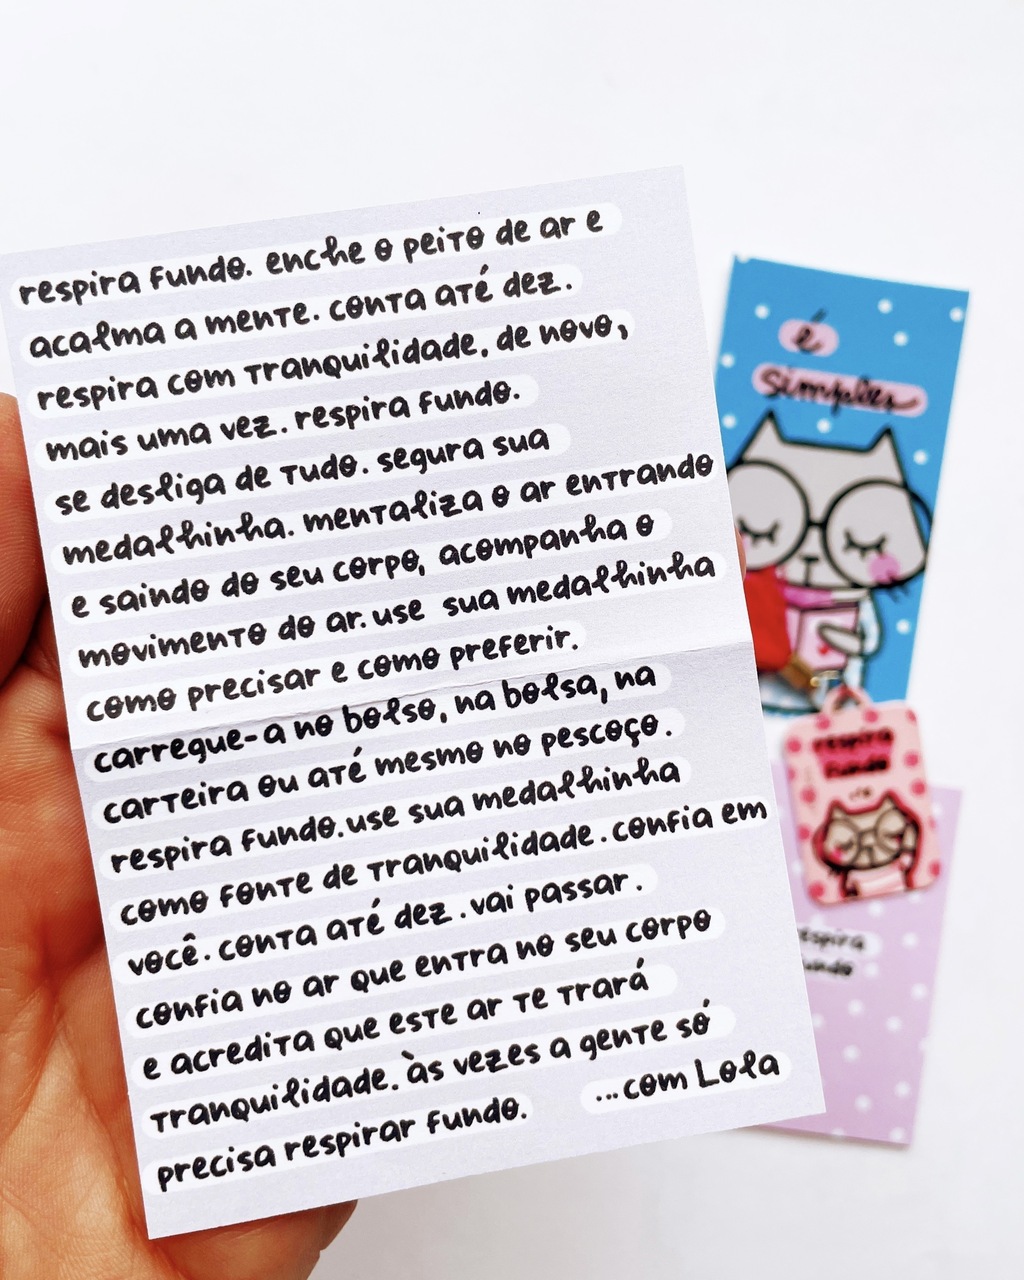 respira fundo. enche o peito de ar e
acalma a mente. conta até dez.
respira com tranquilidade. de novo,
mais uma vez. respira fundo.
se desliga de tudo. segura sua
medalhinha. mentaliza o ar entrando
e saindo do seu corpo, acompanha o
movimento do ar. use sua medalhinha
como precisar e como preferir.
carregue-a no bolso, na bolsa, na
carteira ou até mesmo no pescoço.
respira fundo. use sua medalhinha
como fonte de tranquilidade. confia em
você. conta até dez. vai passar.
confia no ar que entra no seu corpo
e acredita que este ar te trará
tranquilidade. às vezes a gente só
precisa respirar fundo.
...com Lola
é
simples
respira
fundo
espira
undo